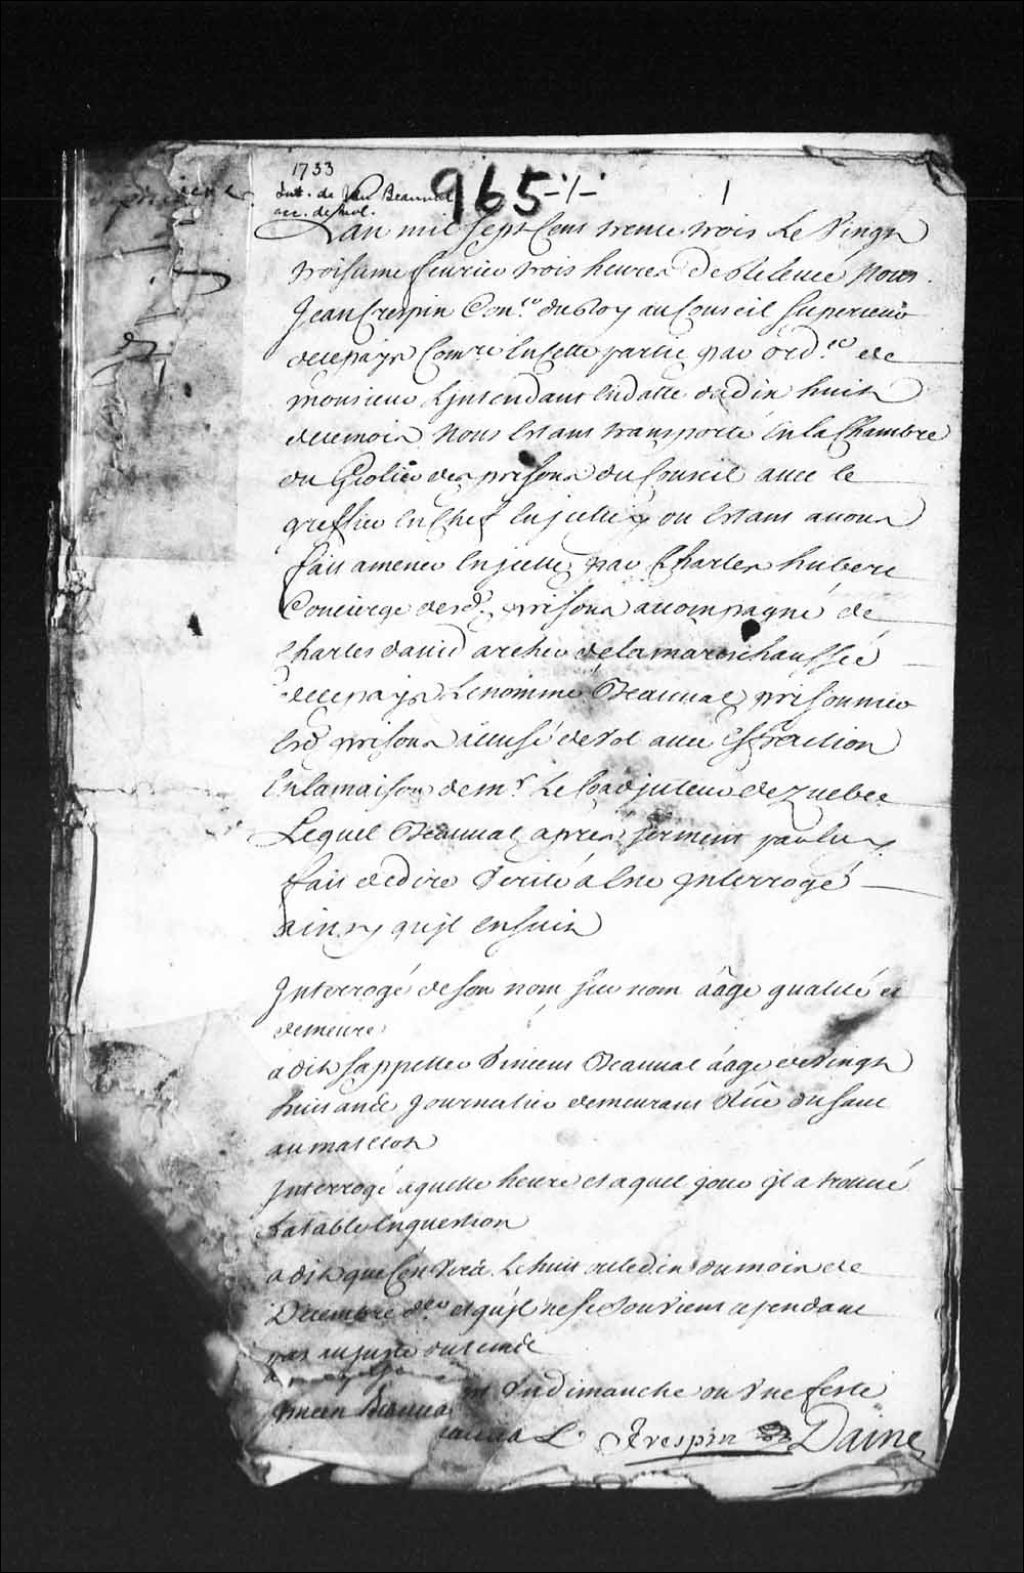 1733
965 -/-
1
Int. de Jean Beauval
acc. de vol.
Lan mil sept Cens trente trois Le Vingt
troisieme feurier trois heures de Releuée Nous
Jean Crespin Con.er du Roy au Conseil Superieur
de ce pays Comre En Cette partie par ord.ce de
Monsieur L'jntendant En datte du dix huit
de ce mois Nous Estans transporté En la Chambre
du Geolier des prisons du Conseil auec le
greffier En Chef En jceluy ou Estans auons
fait amener En jcelle par Charles hubert
Concierge desd. prisons accompagné de
Charles dauid archer de la mareschaussée
de ce pays Le nommé Beauual prisonnier
Esd prisons accusé de Vol auec Effraction
En la maison de mr. Le Coadjuteur de Quebec
Lequel Beauual apres serment par luy
fait de dire Verité a Este Jnterrogé
ainsy qujl Ensuit
Jnterrogé de son nom surnom aâge qualité et
demeure
a dit sappeller Vincent Beauual aâgé de Vingt
huit ans Journalier demeurant Rüe du Saut
au matelot
Jnterrogé a quelle heure et a quel jour jl a trouué
La table En question
a dit que Cen Vera Le huit ou le dix du mois de
Decembre d.er et qujl ne se Souvient cependant
pas au juste du
Vn dimanche ou Vne feste
Vincen Beauual
Crespin Daine